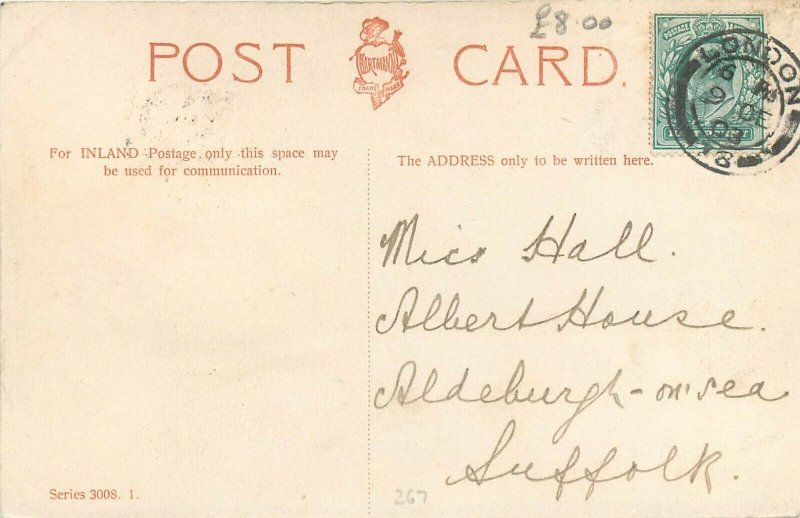 £8.00
POST CARD.
HARTMANN
TRADE MARK
POSTAGE
HALFPENNY
LONDON
DE
For INLAND Postage only this space may
be used for communication.
The ADDRESS only to be written here.
Miss Hall.
Albert House.
Aldeburgh-on-sea
Suffolk.
Series 3008. 1.
267